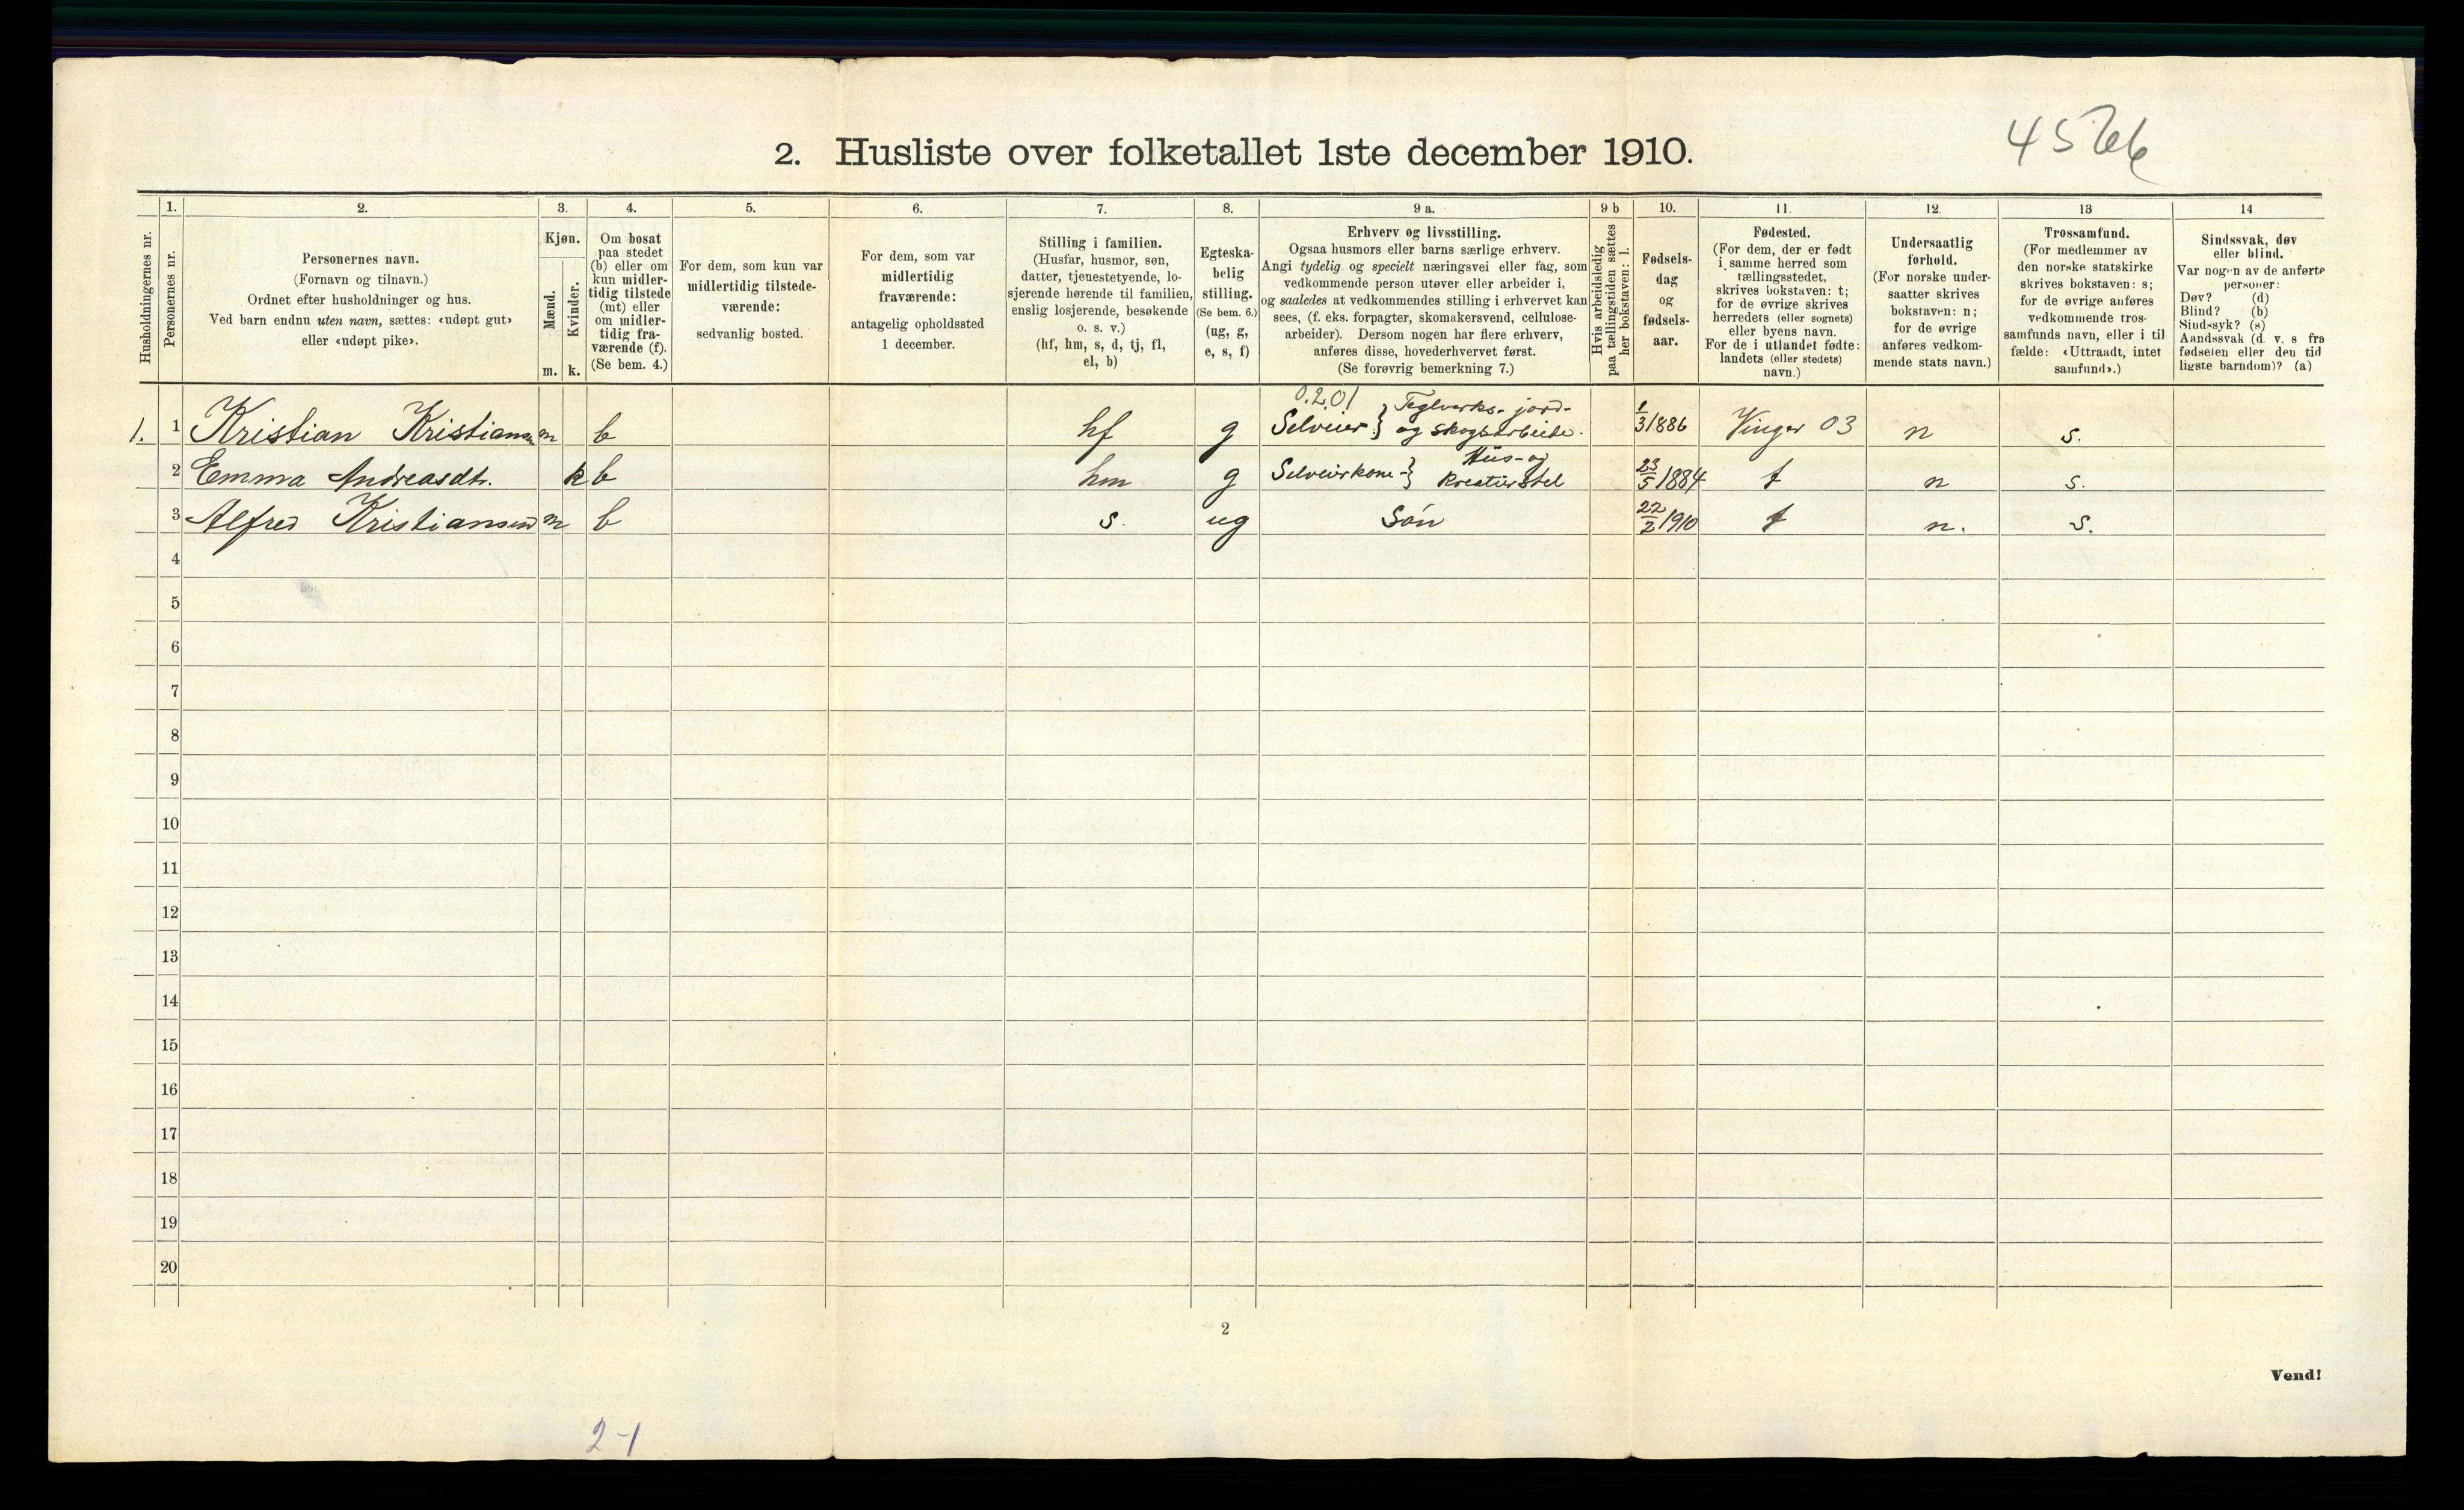 4566
2. Husliste over folketallet 1ste december 1910.
Husholdningernes nr.
1.
Personernes nr.
2.
Personernes navn.
(Fornavn og tilnavn.)
Ordnet efter husholdninger og hus.
Ved barn endnu uten navn, sættes: «udøpt gut»
eller «udøpt pike».
3.
Kjøn.
Mænd.
Kvinder.
m. k.
4.
Om bosat
paa stedet
(b) eller om
kun midler-
tidig tilstede
(mt) eller
om midler-
tidig fra-
værende (f).
(Se bem. 4.)
5.
For dem, som kun var
midlertidig tilstede-
værende:
sedvanlig bosted.
6.
For dem, som var
midlertidig
fraværende:
antagelig opholdssted
1 december.
7.
Stilling i familien.
(Husfar, husmor, søn,
datter, tjenestetyende, lo-
sjerende hørende til familien,
enslig losjerende, besøkende
o. s. v.)
(hf, hm, s, d, tj, fl,
el, b)
8.
Egteska-
belig
stilling.
(Se bem. 6.)
(ug, g,
e, s, f)
9 a.
Erhverv og livsstilling.
Ogsaa husmors eller barns særlige erhverv.
Angi tydelig og specielt næringsvei eller fag, som
vedkommende person utøver eller arbeider i,
og saaledes at vedkommendes stilling i erhvervet kan
sees, (f. eks. forpagter, skomakersvend, cellulose-
arbeider). Dersom nogen har flere erhverv,
anføres disse, hovederhvervet først.
(Se forøvrig bemerkning 7.)
9 b
Hvis arbeidsledig
paa tællingstiden sættes
her bokstaven: l.
10.
Fødsels-
dag
og
fødsels-
aar.
11.
Fødested.
(For dem, der er født
i samme herred som
tællingsstedet,
skrives bokstaven: t;
for de øvrige skrives
herredets (eller sognets)
eller byens navn.
For de i utlandet fødte:
landets (eller stedets)
navn.)
12.
Undersaatlig
forhold.
(For norske under-
saatter skrives
bokstaven: n;
for de øvrige
anføres vedkom-
mende stats navn.)
13
Trossamfund.
(For medlemmer av
den norske statskirke
skrives bokstaven: s;
for de øvrige anføres
vedkommende tros-
samfunds navn, eller i til-
fælde: «Uttraadt, intet
samfund».)
14
Sindssvak, døv
eller blind.
Var nogen av de anførte
personer:
Døv? (d)
Blind? (b)
Sindssyk? (s)
Aandssvak (d. v. s. fra
fødselen eller den tid-
ligste barndom)? (a)
0.2.01
1. 1 Kristian Kristiansen m b hf g Selveier } Teglverks- jord- og skogsarbeide. 1/3 1886 Vinger 03 n s.
2 Emma Andreasdtr. k b hm g Selveierkone-} Hus- og Kreaturstel 23/5 1884 t n s.
3 Alfred Kristiansen m b s. ug Søn 22/2 1910 t n. s.
4
5
6
7
8
9
10
11
12
13
14
15
16
17
18
19
20
2
Vend!
2-1